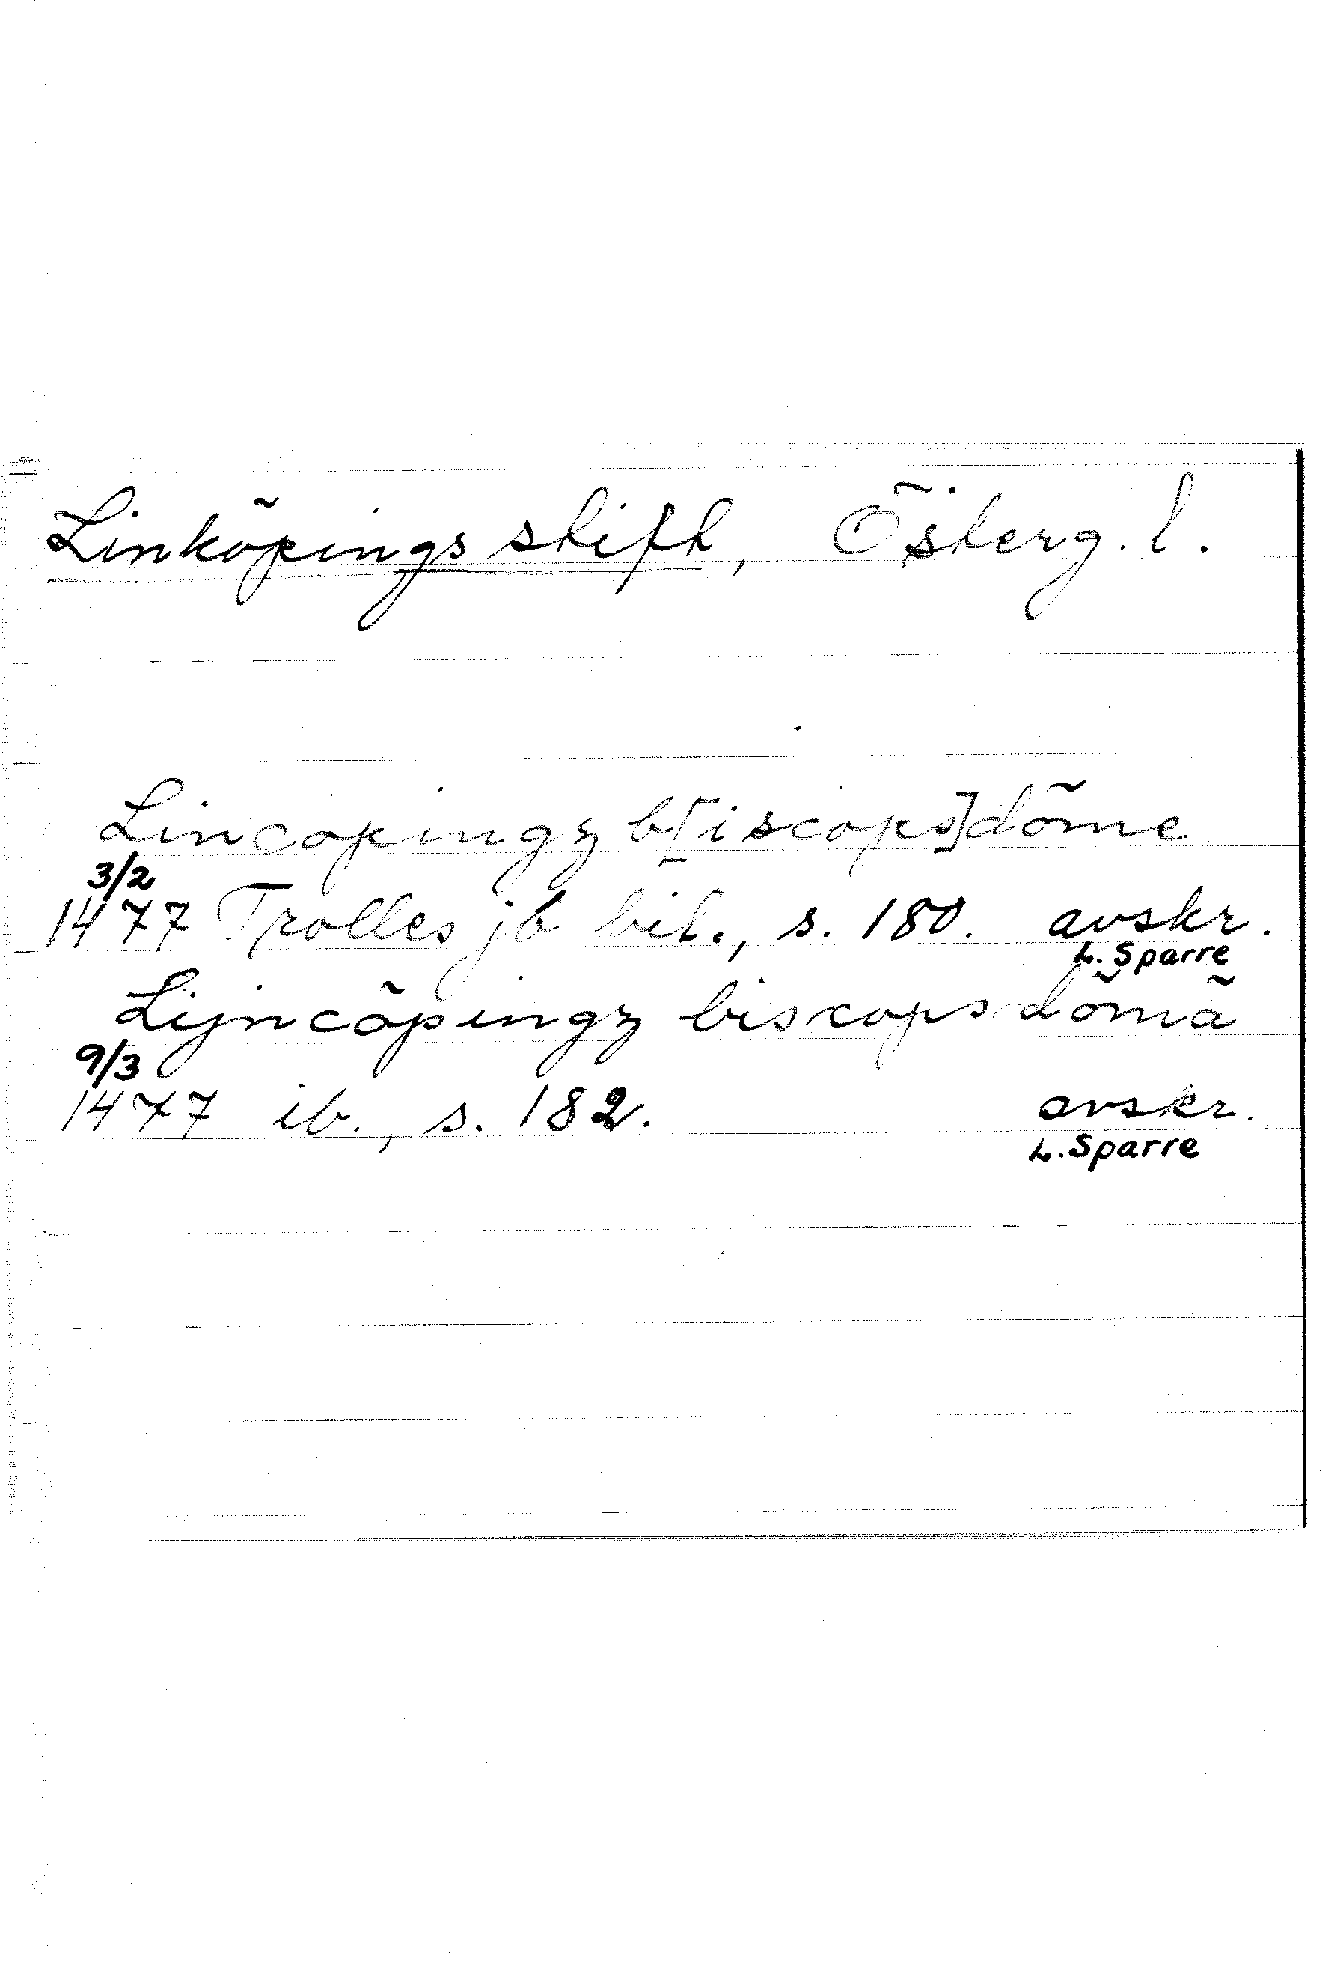 Linköpings stift, Österg. l.
Lincopingz b[iscops]döme
3/2
1477 Trolles jb bil., s. 180. avskr.
L. Sparre
Lijncöpingz biscopsdömä
9/3
1477 ib., s. 182. avskr.
L. Sparre